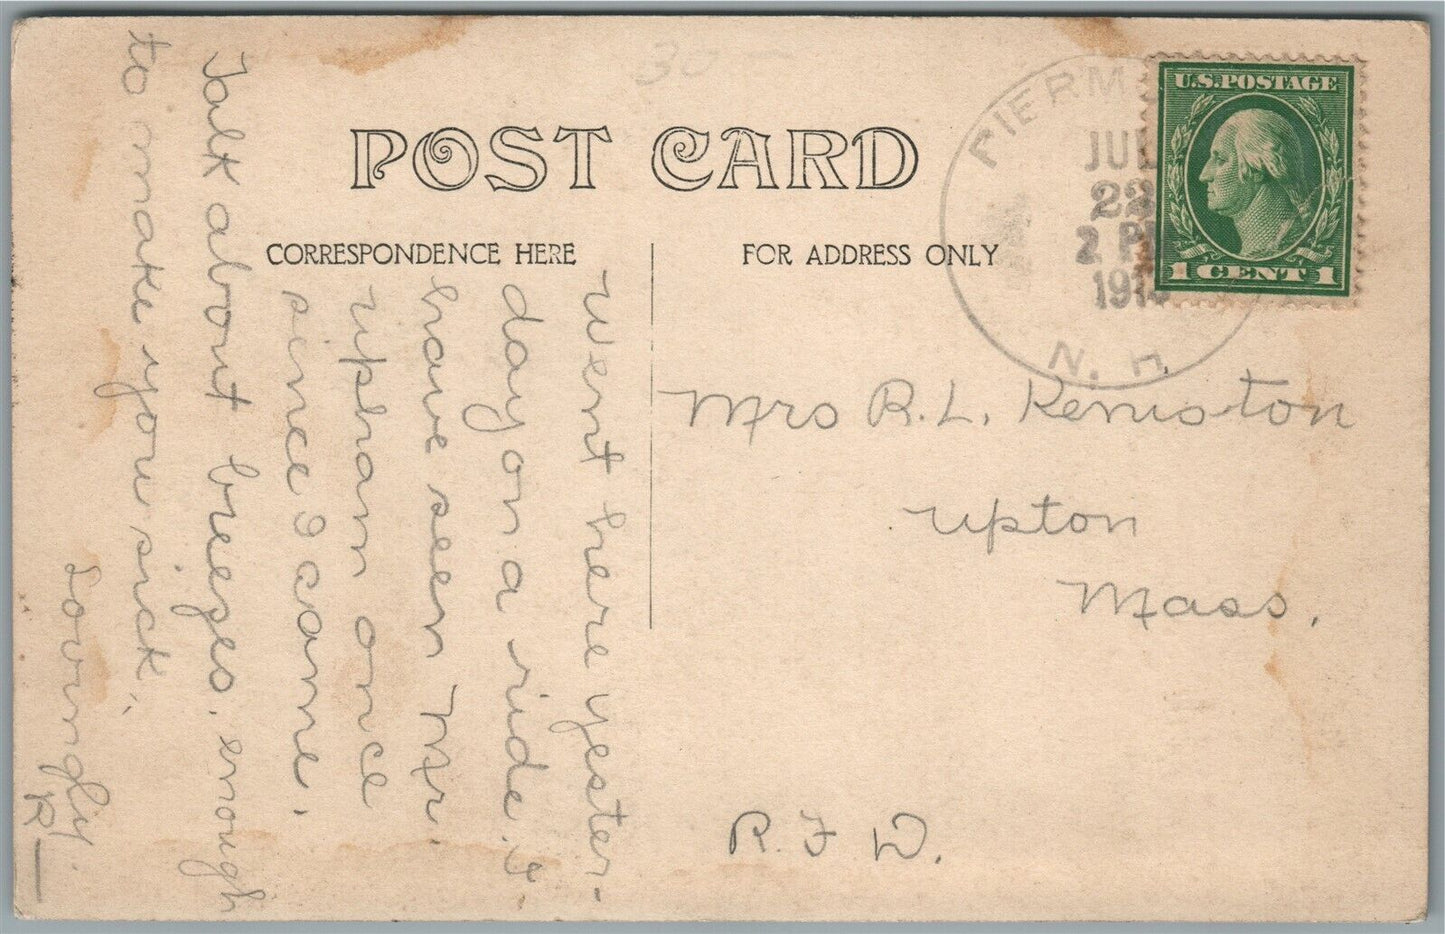 30 —
POST CARD
CORRESPONDENCE HERE
FOR ADDRESS ONLY
PIERM
JUL
22
2 P
191
N. H.
U.S. POSTAGE
1 CENT 1
Went here yester-
day on a ride. I
have seen Mr.
Upham once
since I came.
Talk about breezes, enough
to make you sick.
Lovingly.
R—
Mrs R. L. Keniston
Upton
Mass.
R. F. D.